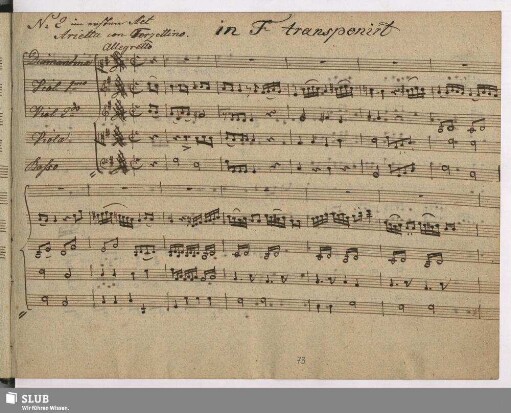 No 2 im ersten Act
Arietta con Terzettino.
in F transponirt
Allegretto
Viol 1mo
Viol 2do
Viola
Basso
73
SLUB
Wir führen Wissen.